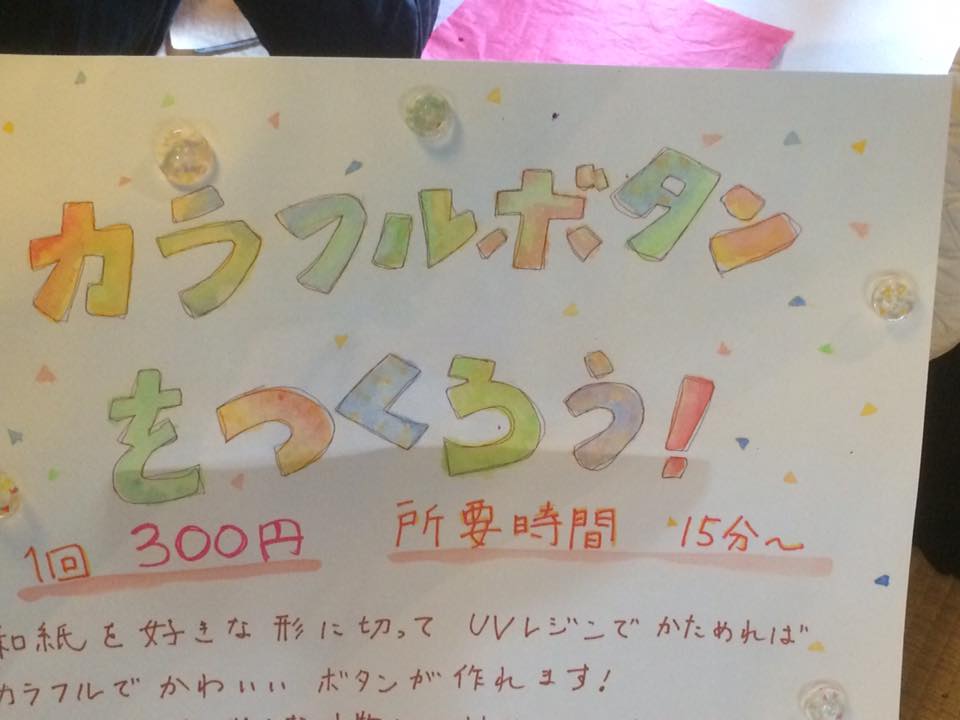 カラフルボタン
をつくろう!
1回 300円 所要時間 15分〜
和紙を好きな形に切って UVレジンでかためれば
カラフルでかわいい ボタンが作れます!